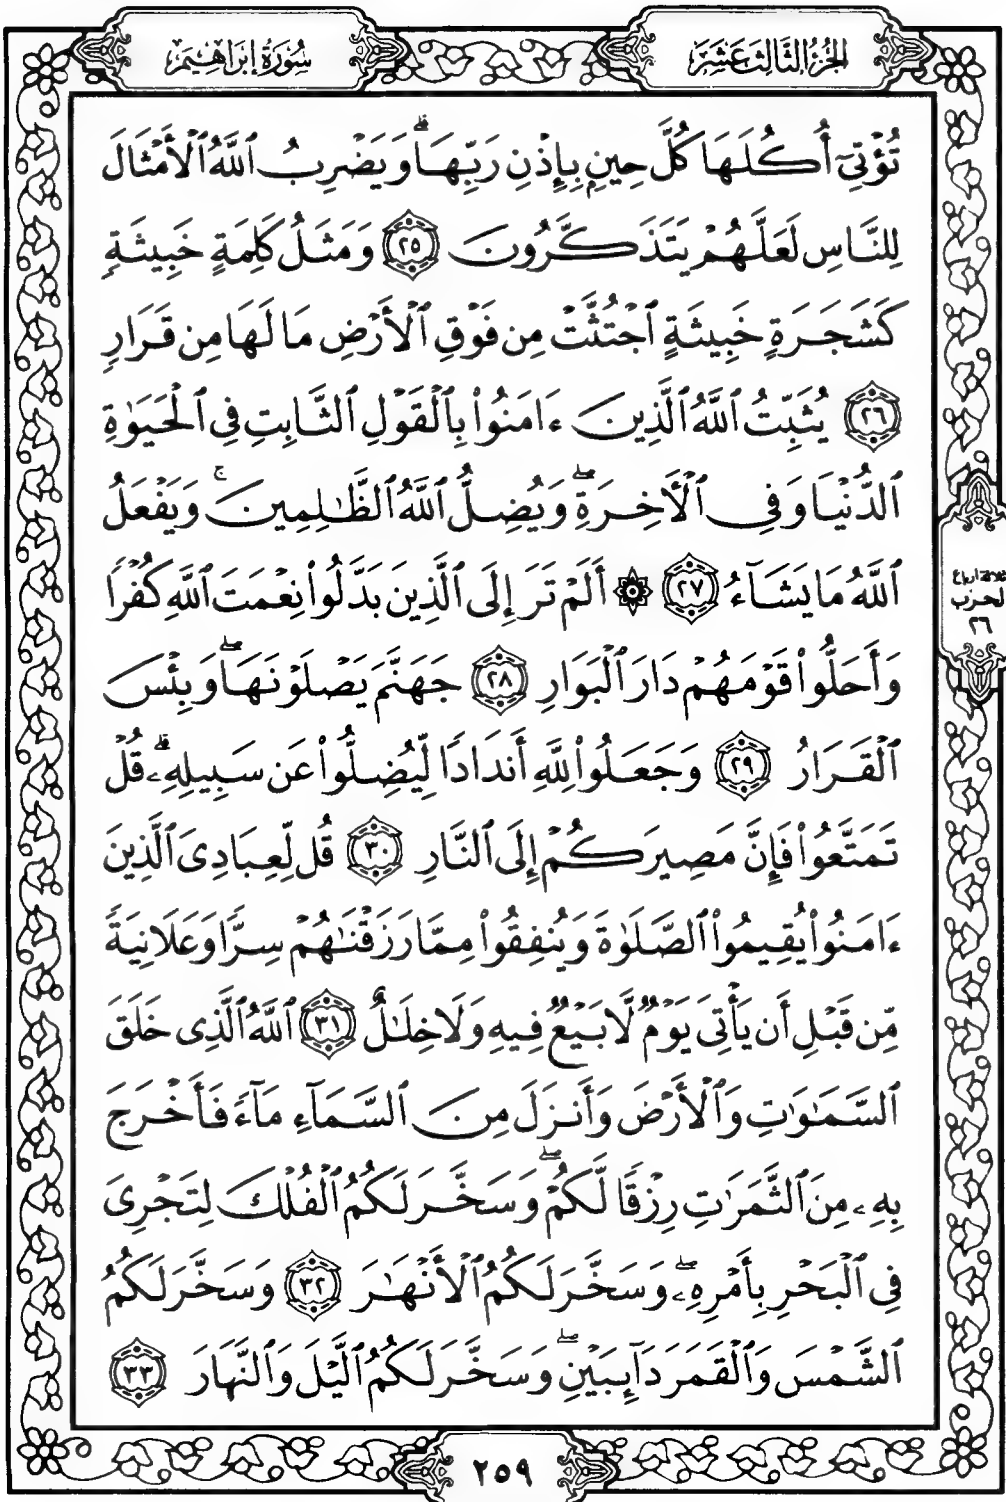 الجزء الثالث عشر
سورة إبراهيم
تُؤْتِىٓ أُكُلَهَا كُلَّ حِينٍۭ بِإِذْنِ رَبِّهَاۗ وَيَضْرِبُ ٱللَّهُ ٱلْأَمْثَالَ
لِلنَّاسِ لَعَلَّهُمْ يَتَذَكَّرُونَ ٢٥ وَمَثَلُ كَلِمَةٍ خَبِيثَةٍ
كَشَجَرَةٍ خَبِيثَةٍ ٱجْتُثَّتْ مِن فَوْقِ ٱلْأَرْضِ مَا لَهَا مِن قَرَارٍ
٢٦ يُثَبِّتُ ٱللَّهُ ٱلَّذِينَ ءَامَنُوا۟ بِٱلْقَوْلِ ٱلثَّابِتِ فِى ٱلْحَيَوٰةِ
ٱلدُّنْيَا وَفِى ٱلْأَخِرَةِۖ وَيُضِلُّ ٱللَّهُ ٱلظَّٰلِمِينَۚ وَيَفْعَلُ
ٱللَّهُ مَا يَشَآءُ ٢٧ ۞ أَلَمْ تَرَ إِلَى ٱلَّذِينَ بَدَّلُوا۟ نِعْمَتَ ٱللَّهِ كُفْرًا
وَأَحَلُّوا۟ قَوْمَهُمْ دَارَ ٱلْبَوَارِ ٢٨ جَهَنَّمَ يَصْلَوْنَهَاۖ وَبِئْسَ
ٱلْقَرَارُ ٢٩ وَجَعَلُوا۟ لِلَّهِ أَندَادًا لِّيُضِلُّوا۟ عَن سَبِيلِهِۦۗ قُلْ
تَمَتَّعُوا۟ فَإِنَّ مَصِيرَكُمْ إِلَى ٱلنَّارِ ٣٠ قُل لِّعِبَادِىَ ٱلَّذِينَ
ءَامَنُوا۟ يُقِيمُوا۟ ٱلصَّلَوٰةَ وَيُنفِقُوا۟ مِمَّا رَزَقْنَٰهُمْ سِرًّا وَعَلَانِيَةً
مِّن قَبْلِ أَن يَأْتِىَ يَوْمٌ لَّا بَيْعٌ فِيهِ وَلَا خِلَٰلٌ ٣١ ٱللَّهُ ٱلَّذِى خَلَقَ
ٱلسَّمَٰوَٰتِ وَٱلْأَرْضَ وَأَنزَلَ مِنَ ٱلسَّمَآءِ مَآءً فَأَخْرَجَ
بِهِۦ مِنَ ٱلثَّمَرَٰتِ رِزْقًا لَّكُمْۖ وَسَخَّرَ لَكُمُ ٱلْفُلْكَ لِتَجْرِىَ
فِى ٱلْبَحْرِ بِأَمْرِهِۦۖ وَسَخَّرَ لَكُمُ ٱلْأَنْهَٰرَ ٣٢ وَسَخَّرَ لَكُمُ
ٱلشَّمْسَ وَٱلْقَمَرَ دَآئِبَيْنِۖ وَسَخَّرَ لَكُمُ ٱلَّيْلَ وَٱلنَّهَارَ ٣٣
ثلاثة أرباع
الحزب
٢٦
٢٥٩